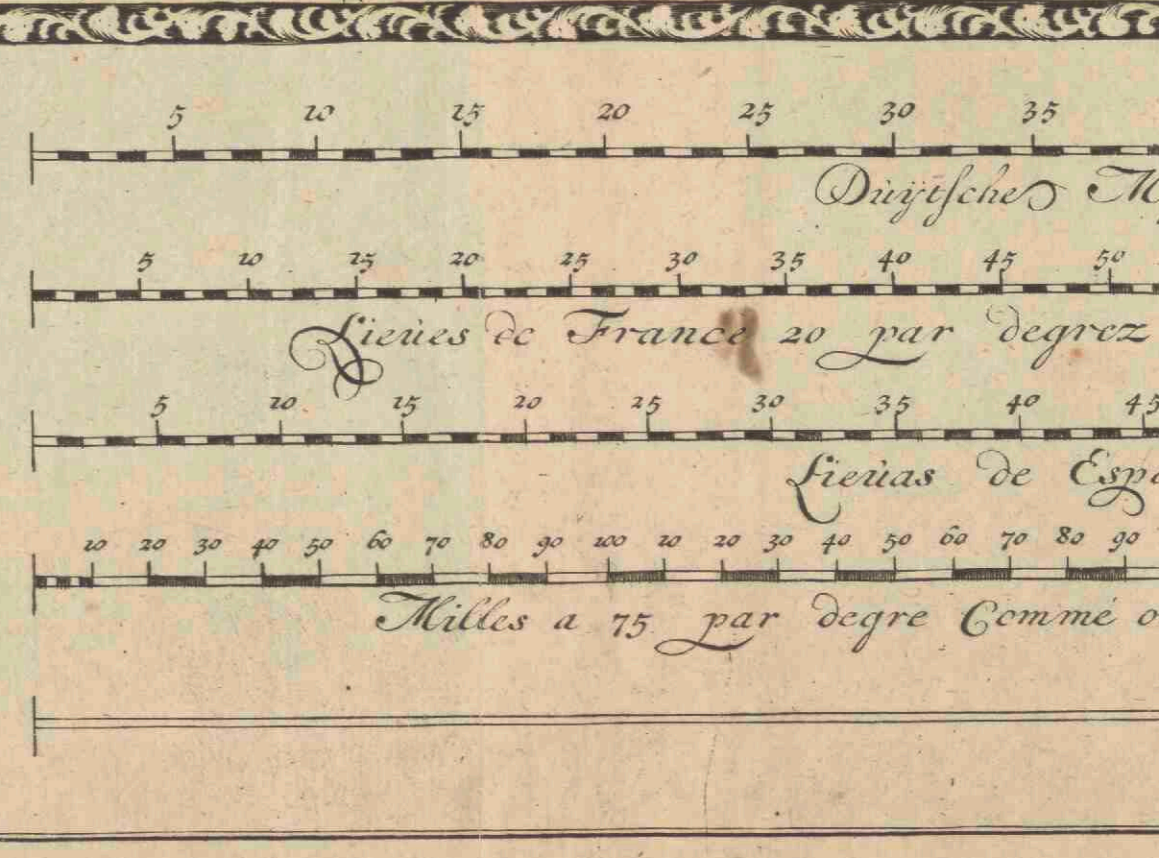 5 10 15 20 25 30 35
Duÿtsche
5 10 15 20 25 30 35 40 45 50
Lieües de France 20 par degrez
5 10 15 20 25 30 35 40 45
Lieüas de
10 20 30 40 50 60 70 80 90 100 10 20 30 40 50 60 70 80 90
Milles a 75 par degre Commé